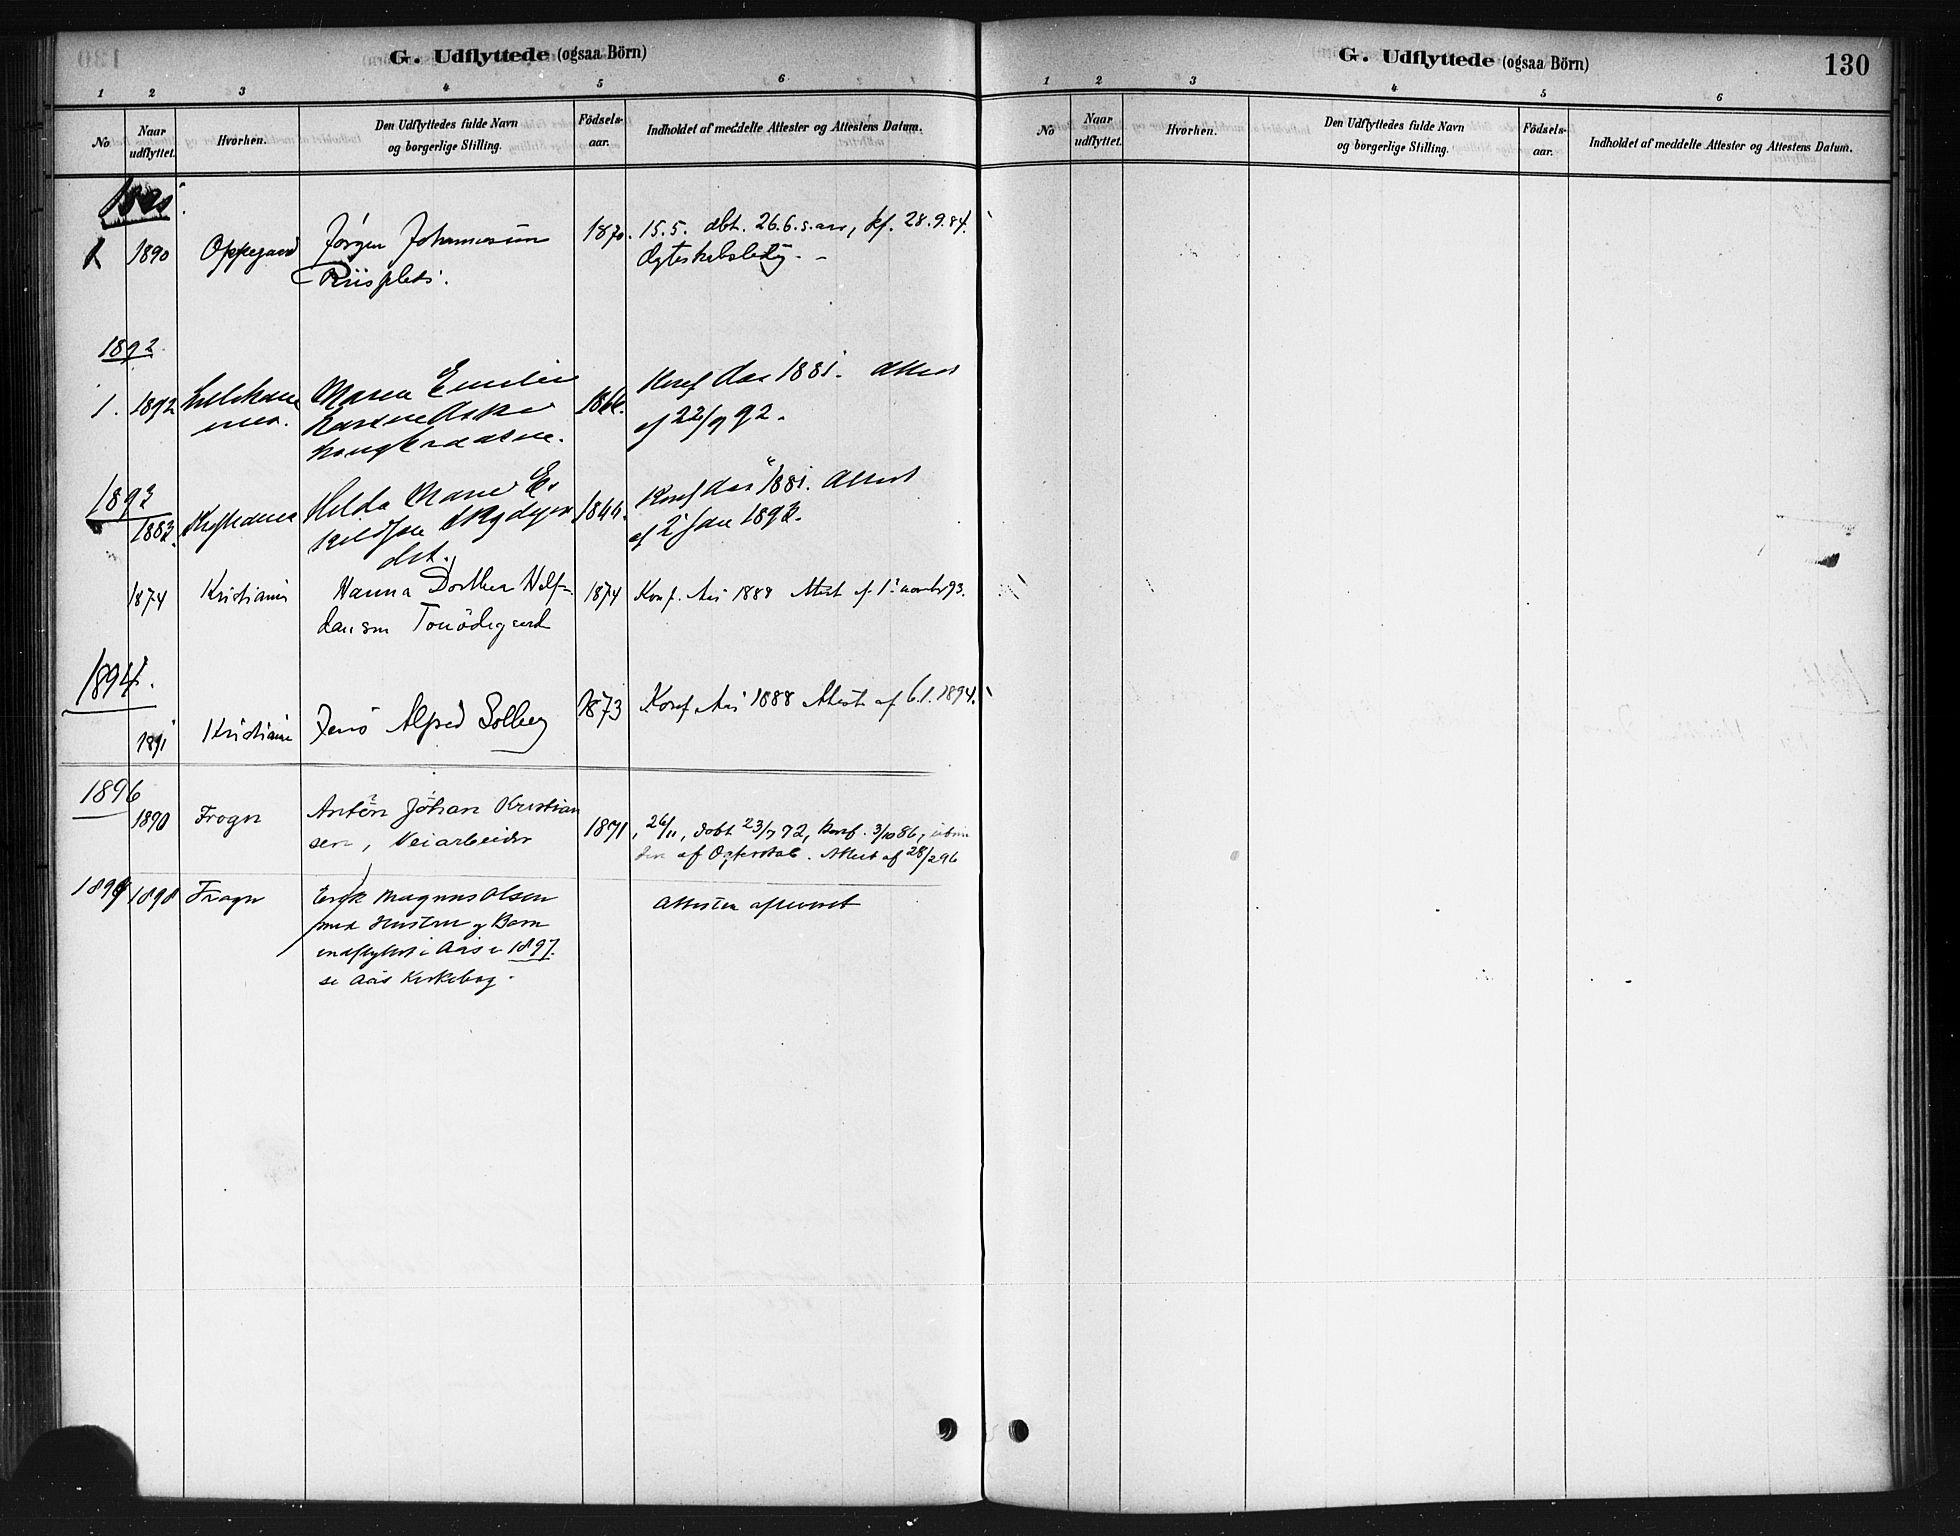 G. Udflyttede (ogsaa Börn)
1 2 3 4 5 6
No Naar udflyttet. Hvorhen. Den Udflyttedes fulde Navn og borgerlige Stilling. Födsels-aar. Indholdet af meddelte Attester og Attestens Datum.
1 1890 Oppegaard Jørgen Johannessen 1870. 15.5. dbt. 26.6. s. aar, kf. 28.9.84.
Riisplads. Ægteskabsledig. -
1892
1. 1892 Maren Emilie 1866. Konf Aas 1881. Attest
af 22/9 92.
1893
Kristiania Hilda Marie Es Konf Aas 1881. Attest
af 2 Jan 1893.
1874 Kristiania Hanna Dorthea Half- 1874 Konf. Aas 1888 Attest af 1. novbr 93.
dansen
1894.
1891 Kristiania Jens Alfred Solberg 1873 Konf Aas 1888 Attest af 6.1.1894.
1896
1890 Frogn Anton Johan Kristian 1871, 26/11, døbt 23/7 72, konf. 3/10 86,
sen, Veiarbeider af Ægteskab. Attest af 28/2 96
1898 Frogn Erik Magnus Olsen Attesten
med Hustru og Barn
indflyttet i Aas i 1897.
se Aas Kirkebog.
G. Udflyttede (ogsaa Börn) 130
1 2 3 4 5 6
No Naar udflyttet. Hvorhen. Den Udflyttedes fulde Navn og borgerlige Stilling. Födsels-aar. Indholdet af meddelte Attester og Attestens Datum.